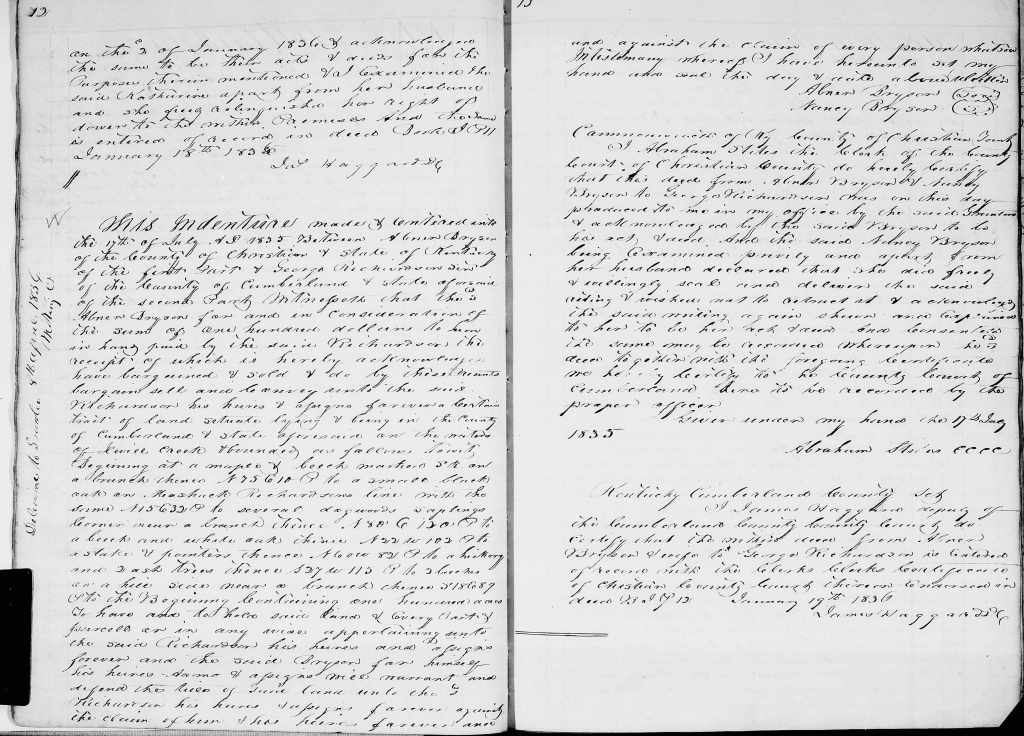 12
on the 2 of January 1836 & acknowledged
the same to be their acts & deeds for the
Purposes therein mentioned & I Examined the
said Katharine apart from her husband
and she freely relinquished her right of
dower to the within Premises and the same
is entered of record in deed Book J P 11
January 18th 1836
Js Haggard DC
This Indenture made & entired into
the 17th of July AD 1835 Between Abner Bryson
of the County of Christian & State of Kentucky
of the first Part & George Richardson
of the County of Cumberland & State aforesaid
of the second Part Witnesseth that the sd
Abner Bryson for and in Consideration of
the sum of one hundred dollars to him
in hand paid by the said Richardson the
receipt of which is hereby acknowledged
have bargained & sold & do by these presents
bargain sell and Convey unto the said
Richardson his heires & assigns forever a Certain
tract of land situate lying & being in the County
of Cumberland & State aforesaid on the waters
of Creek & bounded as follows towit
Begining at a maple & beech marked SR on
a branch thence N75E10P to a small black
oak on Meshack Richardsons line with the
same N15E32P to several dogwoods saplings
Corner near a branch thence N80E 120P to
a beech and white oak thence N22W 102P to
a stake & pointers thence N60W 52P to a hickory
and 2 ash trees thence S37W 113 P to
on a hill side near a branch thence S18E89
P to the Begining Containing one hundred acres
To have and to hold said Land & Every Part &
parcell or in any wise appertaining unto
the said Richardson his heires and assigns
forever and the said Bryson for himself
his heires & assigns will warrant and
defend the title of said land unto the sd
Richardson his heires & assigns forever against
the claim of him & his heirs forever and
Delivered to 1836
13
and against the claim of every person whatsoever
In Testimony whereof I have hereunto set my
hand and seal the day & date above written
Abner Bryson (Seal)
Nancy Bryson (Seal)
Commonwealth of Ky County of Christian Towit
I Abraham Stites the Clerk of the County
Court of Christian County do hereby Certify
that this deed from Abner Bryson & Nancy
Bryson to George Richardson was on this day
produced to me in my office by the said
& acknowledged by the said Bryson to be
his act & deed. And the said Nancy Bryson
being Examined privily and apart from
her husband declared that she did freely
& willingly seal and deliver the said
writing & wished not to retract it & acknowledged
the said writing again shewn and Explained
to her to be her act & deed and Consented
the same may be recorded whereupon the sd
deed together with the foregoing Certificate
is hereby Certified to the County Court of
Cumberland there to be recorded by the
proper officer
Given under my hand the 17th July
1835
Abraham Stites CCCC
Kentucky Cumberland County Sct
I James Haggard deputy of
the Cumberland County County Court do
Certify that the within deed from Abner
Bryson & wife to George Richardson is Entered
of record with the Clerks Clerks Certificate
of Christian County Court thereon Endorsed in
deed B J P 12 January 19th 1836
James Haggard DC